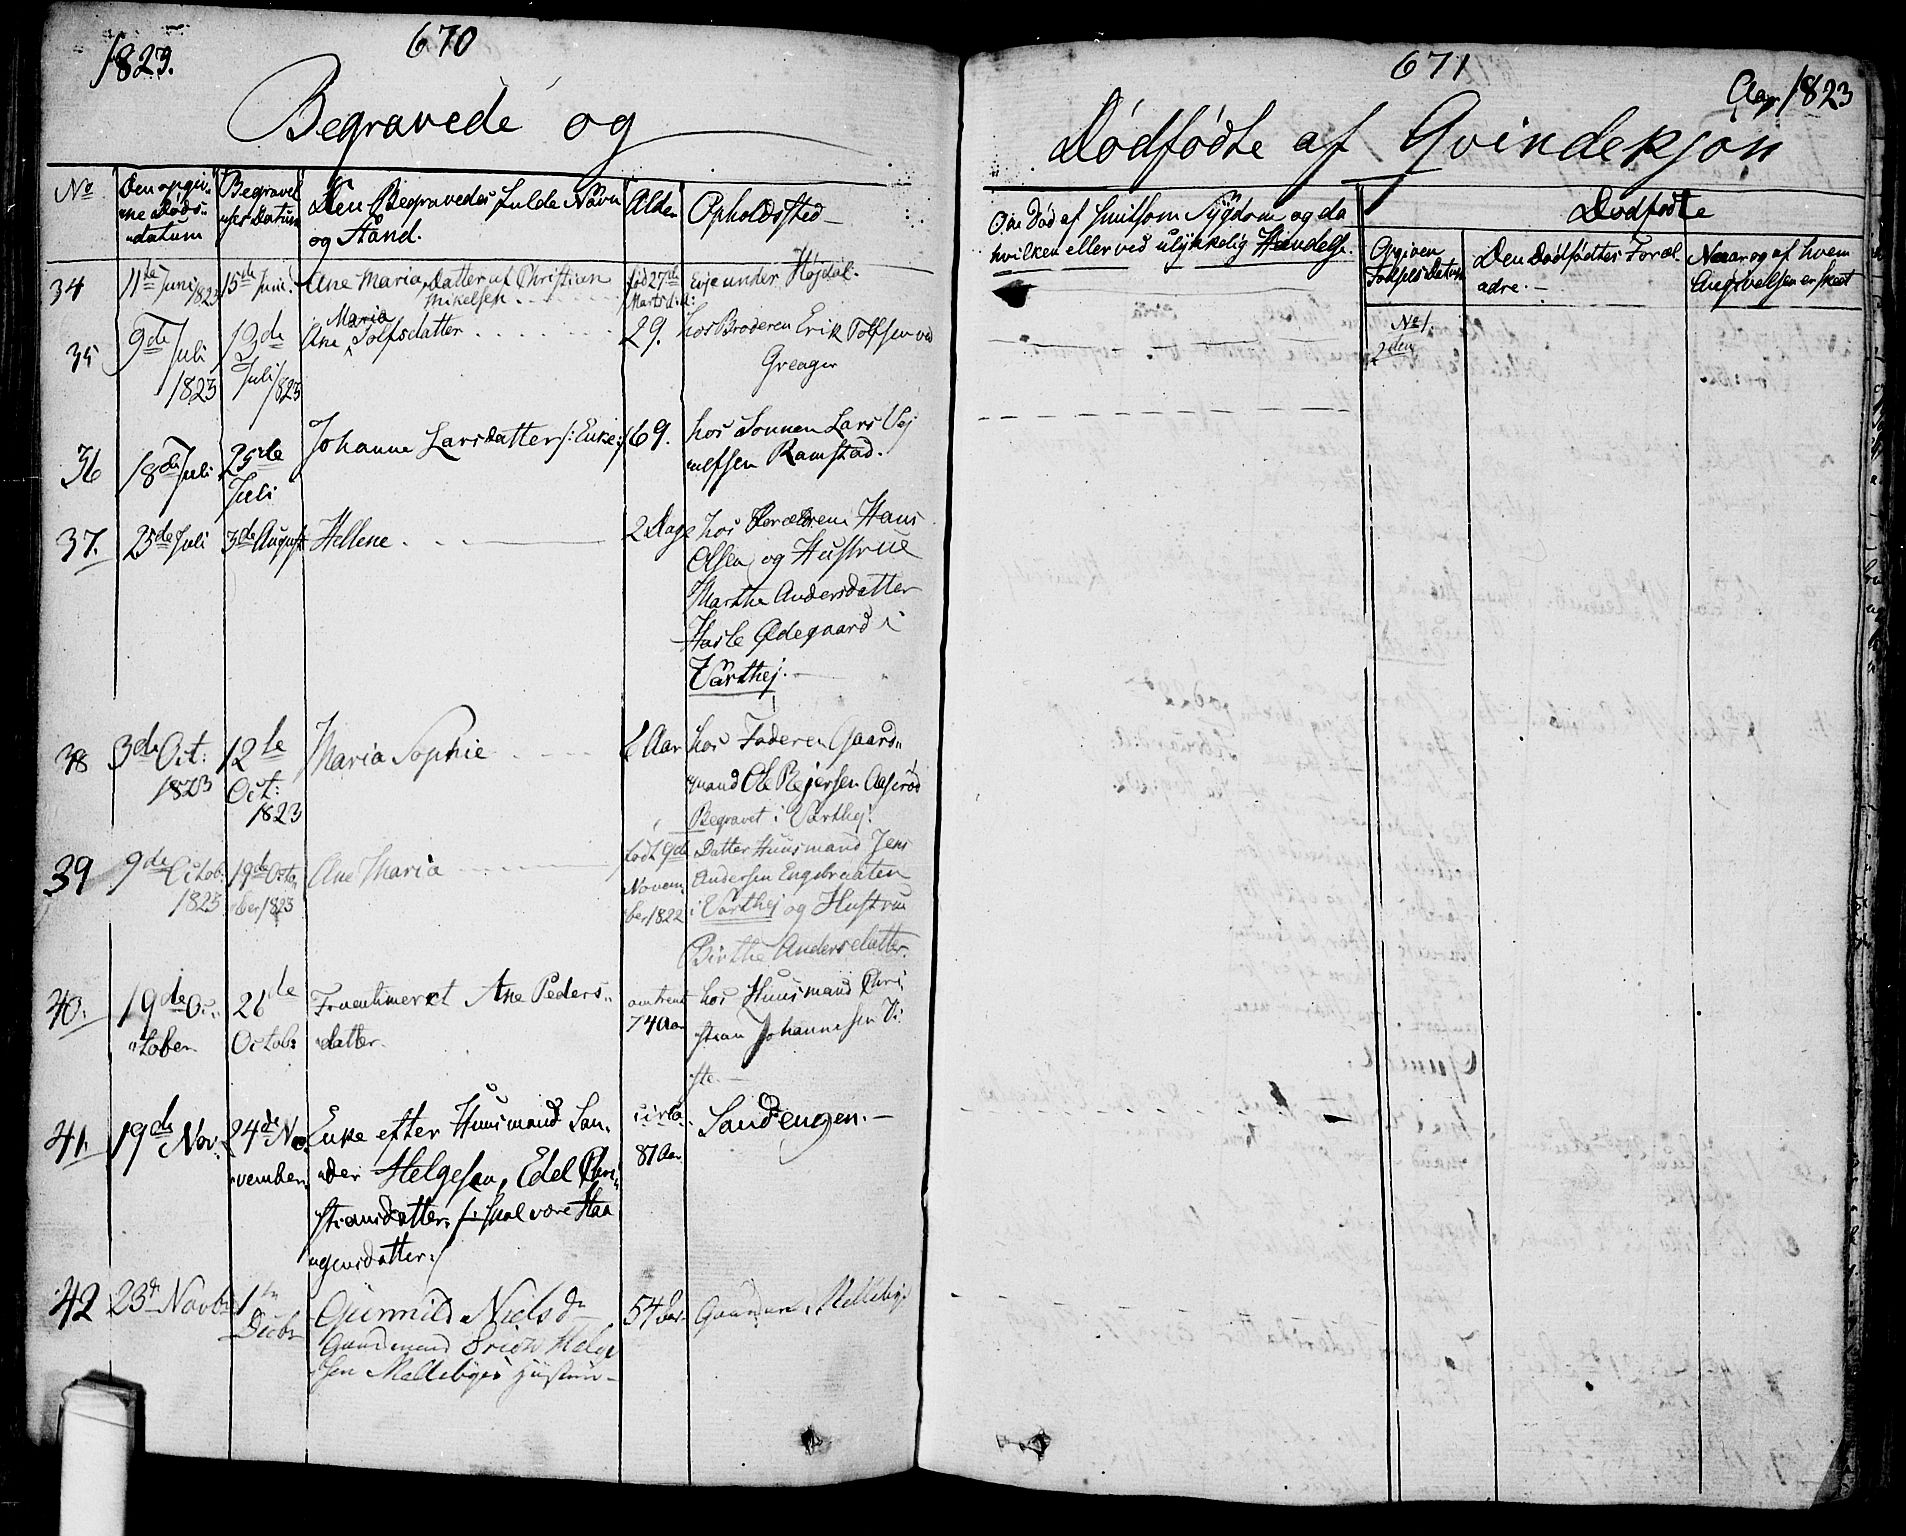 1823.
670
Begravede og
No
Den opgiv-
ne Døds-
datum
Begravel
ses Datum
Den Begravedes fulde Navn
og Stand.
Alder
Opholdssted
34
11te Juni
1823
15de Juni
Ane Maria, datter af Christian
Mikelsen
fød 27de
Marts d. A:
Eije under Højdal.
35
9de Juli
1823
13de
Juli 1823
Maria
Ane Tolfsdatter
29.
hos Broderen Erik Tolfsen ved
Greager
36
18de Juli
25de
Juli
Johanne Larsdatter /: Enke :/
69.
hos Sønnen Lars Ve
ulfsen Ramstad.
37.
25de Juli
3de August
Hellene
2 Dage
hos Forældrene Hans
Olsen og Hustrue
Marthe Andersdatter
Hasle Ødegaard i
Varthej.
38
3de Oct:
1823
12te
Oct:
1823
Maria Sophie
2 Aar
hos Faderen Gaard-
mand Ole Rejersen Aaserød
Begravet i Varthej.
39
9de Octob:
1823
19de Octo
ber 1823
Ane Maria
født 9de
Novem
ber 1822
Datter Huusmand Jens
Andersen Engebraaten
i Varthej og Hustrue
Birthe Andersdatter.
40.
19de Oc-
tober
26de
Octob:
Fruentimeret Ane Peders-
datter.
omtrent
74 Aar
hos Huusmand Chri
stian Johannesen Vi
ste.
41.
19de Nov:
24de No
vember
Enke efter Huusmand San-
der Helgesen, Edel Chri-
stiansdatter, /: skal være Haa
gensdatter :/
circa
87 Aar
Sandengen.
42
23de Novbr
1ste
Decbr
Gunnild Nielsdr
Gaardmand Erich Helge
sen Mellebyes Hustrue
54 Aar
Gaarden Mellebye
671
Aar 1823
Dødfødte af Qvindekjøn
Om Død af smitsom Sygdom og da
hvilken eller ved ulykkelig Hændelse.
Dødfødte
Opgiven
Fødselsdatum
Den Dødfødtes Foræl
dre.
Naar og af hvem
Angivelsen er skeet
No 1.
2den